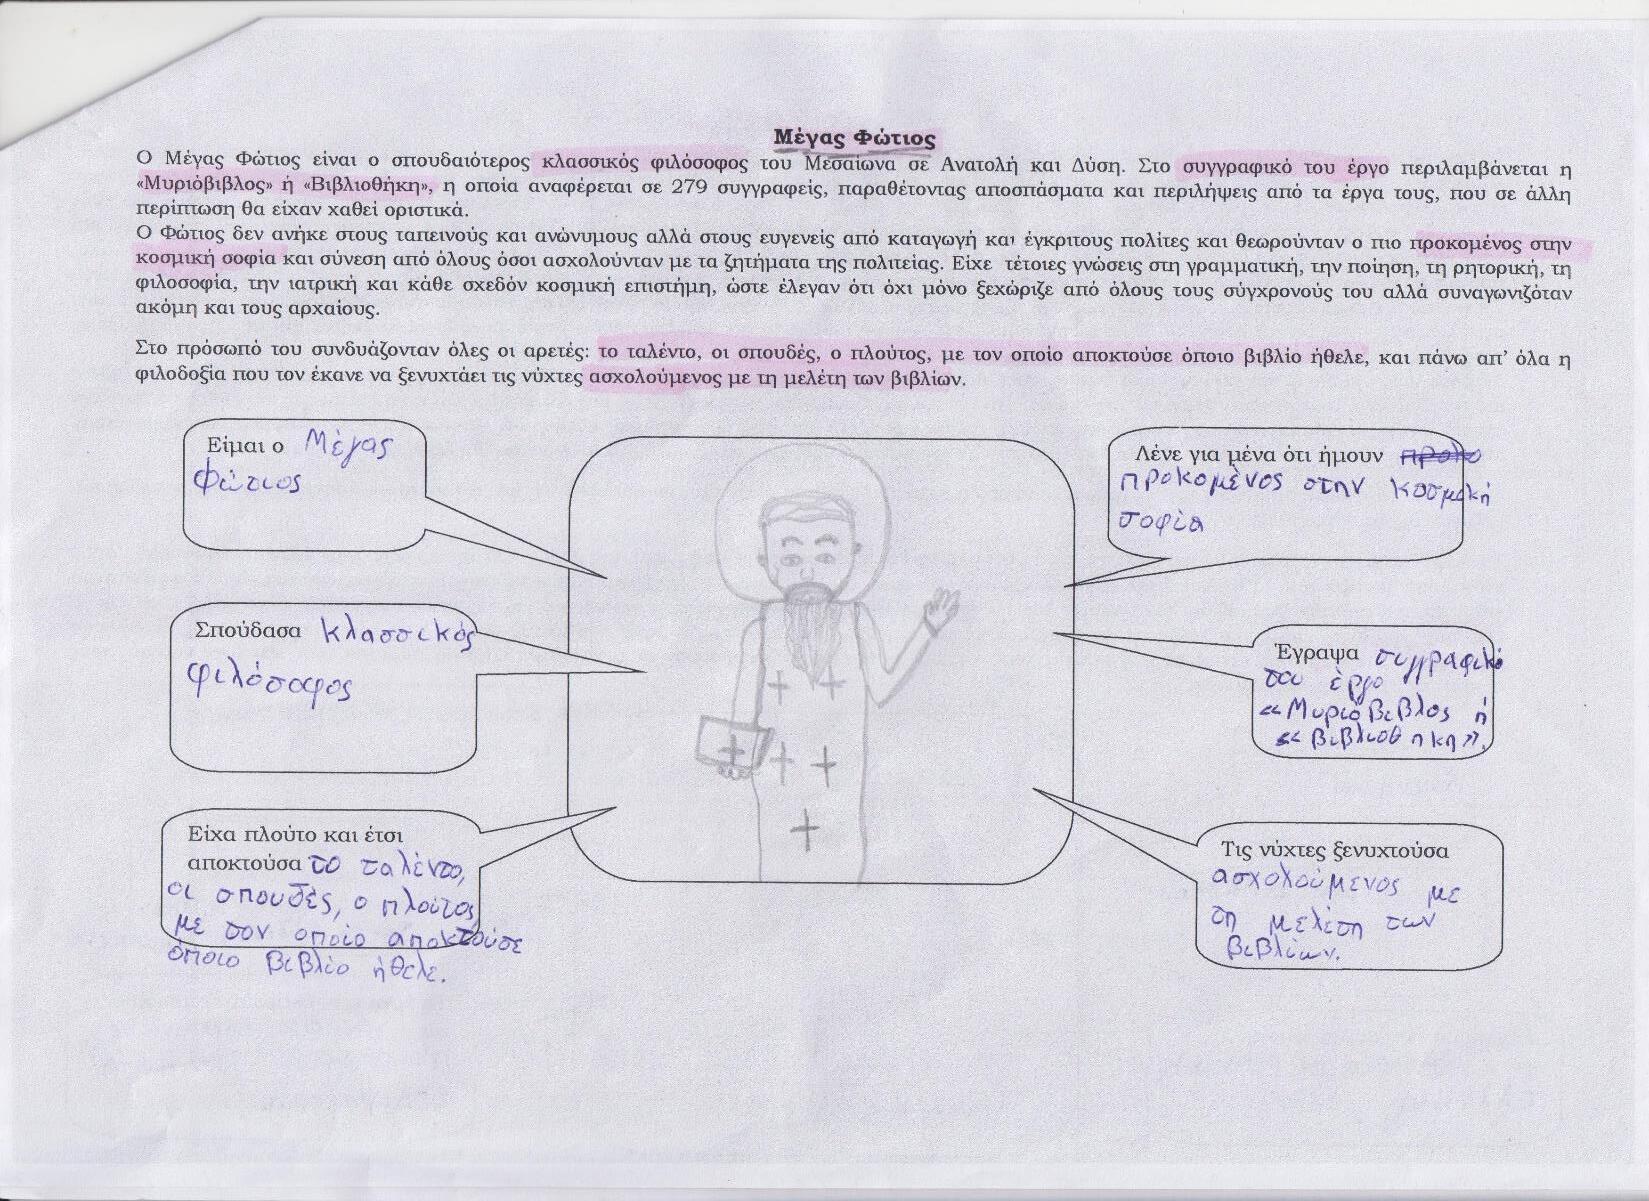 Μέγας Φώτιος
Ο Μέγας Φώτιος είναι ο σπουδαιότερος κλασσικός φιλόσοφος του Μεσαίωνα σε Ανατολή και Δύση. Στο συγγραφικό του έργο περιλαμβάνεται η
«Μυριόβιβλος» ή «Βιβλιοθήκη», η οποία αναφέρεται σε 279 συγγραφείς, παραθέτοντας αποσπάσματα και περιλήψεις από τα έργα τους, που σε άλλη
περίπτωση θα είχαν χαθεί οριστικά.
Ο Φώτιος δεν ανήκε στους ταπεινούς και ανώνυμους αλλά στους ευγενείς από καταγωγή και έγκριτους πολίτες και θεωρούνταν ο πιο προκομένος στην
κοσμική σοφία και σύνεση από όλους όσοι ασχολούνταν με τα ζητήματα της πολιτείας. Είχε τέτοιες γνώσεις στη γραμματική, την ποίηση, τη ρητορική, τη
φιλοσοφία, την ιατρική και κάθε σχεδόν κοσμική επιστήμη, ώστε έλεγαν ότι όχι μόνο ξεχώριζε από όλους τους σύγχρονούς του αλλά συναγωνιζόταν
ακόμη και τους αρχαίους.
Στο πρόσωπό του συνδυάζονταν όλες οι αρετές: το ταλέντο, οι σπουδές, ο πλούτος, με τον οποίο αποκτούσε όποιο βιβλίο ήθελε, και πάνω απ’ όλα η
φιλοδοξία που τον έκανε να ξενυχτάει τις νύχτες ασχολούμενος με τη μελέτη των βιβλίων.
Είμαι ο Μέγας
Φώτιος
Σπούδασα κλασσικός
φιλόσοφος
Είχα πλούτο και έτσι
αποκτούσα το ταλέντο,
οι σπουδές, ο πλούτος,
με τον οποίο αποκτούσε
όποιο βιβλίο ήθελε.
Λένε για μένα ότι ήμουν προκο
προκομένος στην κοσμική
σοφία
Έγραψα συγγραφικό
του έργο
«Μυριόβιβλος ή
«βιβλιοθηκη».
Τις νύχτες ξενυχτούσα
ασχολούμενος με
τη μελέτη των
βιβλίων.